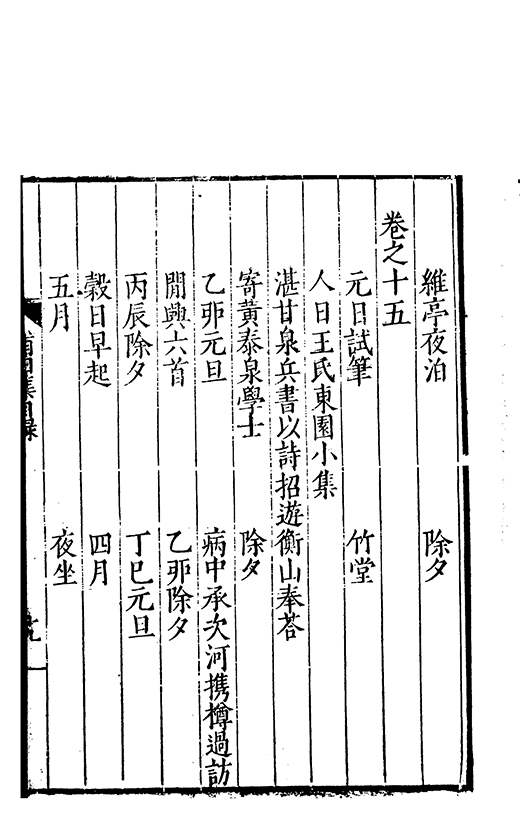 維亭夜泊　除夕
卷之十五
元日試筆　竹堂
人日王氏東園小集
湛甘泉兵書以詩招遊衡山奉荅
寄黃泰泉學士　除夕
乙卯元旦　病中承次河携樽過訪
閒興六首　乙卯除夕
丙辰除夕　丁巳元旦
糓日早起　四月
五月　夜坐
甫田集目錄